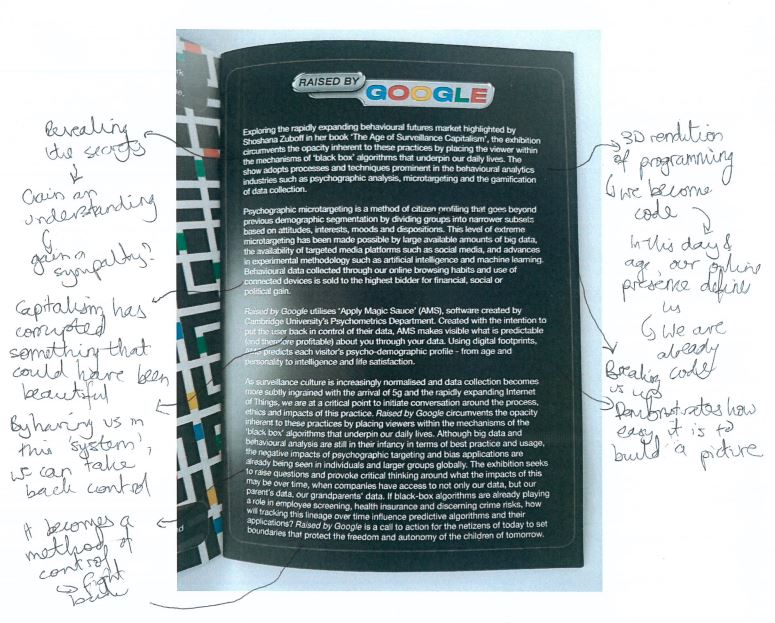 RAISED BY
GOOGLE
Exploring the rapidly expanding behavioural futures market highlighted by
Shoshana Zuboff in her book 'The Age of Surveillance Capitalism', the exhibition
circumvents the opacity inherent to these practices by placing the viewer within
the mechanisms of 'black box' algorithms that underpin our daily lives. The
show adopts processes and techniques prominent in the behavioural analytics
industries such as psychographic analysis, microtargeting and the gamification
of data collection.
Psychographic microtargeting is a method of citizen profiling that goes beyond
previous demographic segmentation by dividing groups into narrower subsets
based on attitudes, interests, moods and dispositions. This level of extreme
microtargeting has been made possible by large available amounts of big data,
the availability of targeted media platforms such as social media, and advances
in experimental methodology such as artificial intelligence and machine learning.
Behavioural data collected through our online browsing habits and use of
connected devices is sold to the highest bidder for financial, social or
political gain.
Raised by Google utilises 'Apply Magic Sauce' (AMS), software created by
Cambridge University's Psychometrics Department. Created with the intention to
put the user back in control of their data, AMS makes visible what is predictable
(and therefore profitable) about you through your data. Using digital footprints,
AMS predicts each visitor's psycho-demographic profile - from age and
personality to intelligence and life satisfaction.
As surveillance culture is increasingly normalised and data collection becomes
more subtly ingrained with the arrival of 5g and the rapidly expanding Internet
of Things, we are at a critical point to initiate conversation around the process,
ethics and impacts of this practice. Raised by Google circumvents the opacity
inherent to these practices by placing viewers within the mechanisms of the
'black box' algorithms that underpin our daily lives. Although big data and
behavioural analysis are still in their infancy in terms of best practice and usage,
the negative impacts of psychographic targeting and bias applications are
already being seen in individuals and larger groups globally. The exhibition seeks
to raise questions and provoke critical thinking around what the impacts of this
may be over time, when companies have access to not only our data, but our
parent's data, our grandparents' data. If black-box algorithms are already playing
a role in employee screening, health insurance and discerning crime risks, how
will tracking this lineage over time influence predictive algorithms and their
applications? Raised by Google is a call to action for the netizens of today to set
boundaries that protect the freedom and autonomy of the children of tomorrow.
Revealing
the secrets
Gain an
understanding
gain a
sympathy?
Capitalism has
corrupted
something that
could have been
beautiful
By having us in
this 'system',
we can take
back control
It becomes a
method of
control
fight
back
3D rendition
of programming
we become
code
In this day &
age, our online
presence define
us
We are
already
code
Breaking
us up
Demonstrates how
easy it is to
build a picture